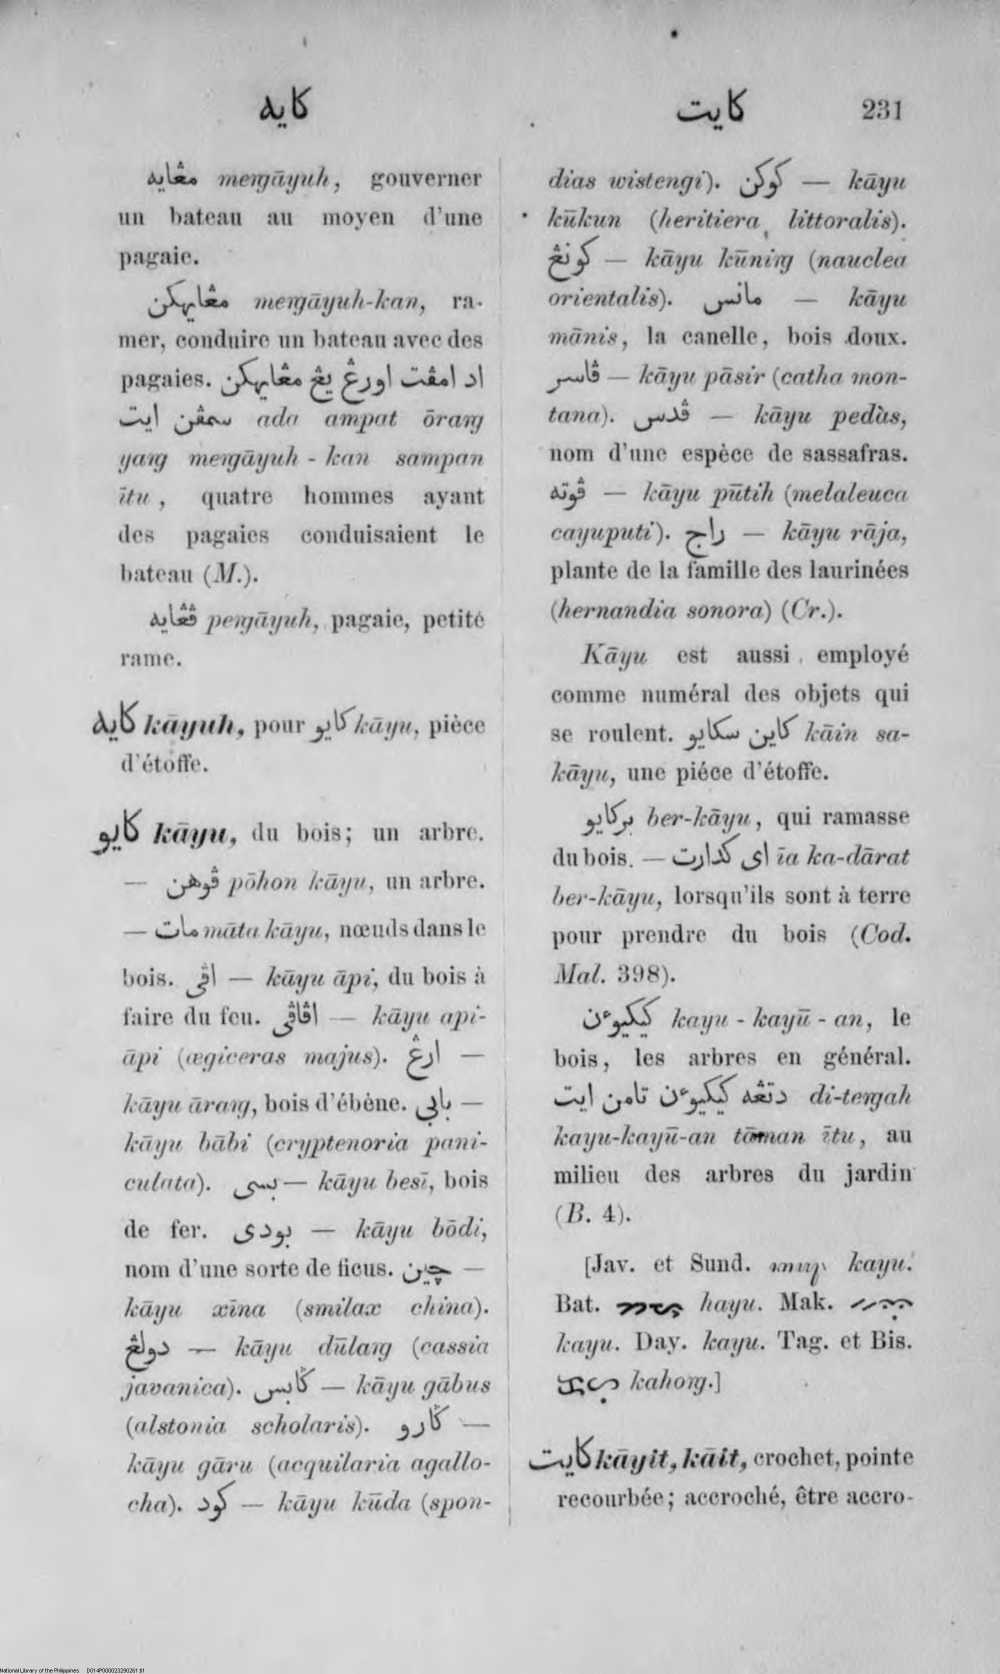 كايه
كايت 231
مڠايه meṅgāyuh, gouverner
un bateau au moyen d'une
pagaie.
مڠايهكن meṅgāyuh-kan, ra-
mer, conduire un bateau avec des
pagaies. اد امڤت اورڠ يڠ مڠايهكن
سمڤن ايت ada ampat ōraṅg
yaṅg meṅgāyuh-kan sampan
ītu, quatre hommes ayant
des pagaies conduisaient le
bateau (M.).
ڤڠايه peṅgāyuh, pagaie, petite
rame.
كايه kāyuh, pour كايو kāyu, pièce
d'étoffe.
كايو kāyu, du bois; un arbre.
— ڤوهن pōhon kāyu, un arbre.
— مات māta kāyu, nœuds dans le
bois. اڤي — kāyu āpi, du bois à
faire du feu. اڤاڤي — kāyu api-
āpi (ægiceras majus). ارڠ —
kāyu āraṅg, bois d'ébène. بابي —
kāyu bābi (cryptenoria pani-
culata). بسي — kāyu besī, bois
de fer. بودي — kāyu bōdi,
nom d'une sorte de ficus. چين —
kāyu xīna (smilax china).
دولڠ — kāyu dūlaṅg (cassia
javanica). ݢابس — kāyu gābus
(alstonia scholaris). ݢارو —
kāyu gāru (acquilaria agallo-
cha). كود — kāyu kūda (spon-
dias wistengi). كوكن — kāyu
kūkun (heritiera littoralis).
كونڠ — kāyu kūniṅg (nauclea
orientalis). مانس — kāyu
mānis, la canelle, bois doux.
ڤاسر — kāyu pāsir (catha mon-
tana). ڤدس — kāyu pedàs,
nom d'une espèce de sassafras.
ڤوته — kāyu pūtih (melaleuca
cayuputi). راج — kāyu rāja,
plante de la famille des laurinées
(hernandia sonora) (Cr.).
Kāyu est aussi employé
comme numéral des objets qui
se roulent. كاين سكايو kāin sa-
kāyu, une piéce d'étoffe.
بركايو ber-kāyu, qui ramasse
du bois. — اي كدارت īa ka-dārat
ber-kāyu, lorsqu'ils sont à terre
pour prendre du bois (Cod.
Mal. 398).
كيكيوءن kayu-kayū-an, le
bois, les arbres en général.
دتڠه كيكيوءن تامن ايت di-teṅgah
kayu-kayū-an tāman ītu, au
milieu des arbres du jardin
(B. 4).
[Jav. et Sund. kayu.
Bat. hayu. Mak.
kayu. Day. kayu. Tag. et Bis.
kahoṅg.]
كايت kāyit, kāit, crochet, pointe
recourbée; accroché, être accro-
National Library of the Philippines